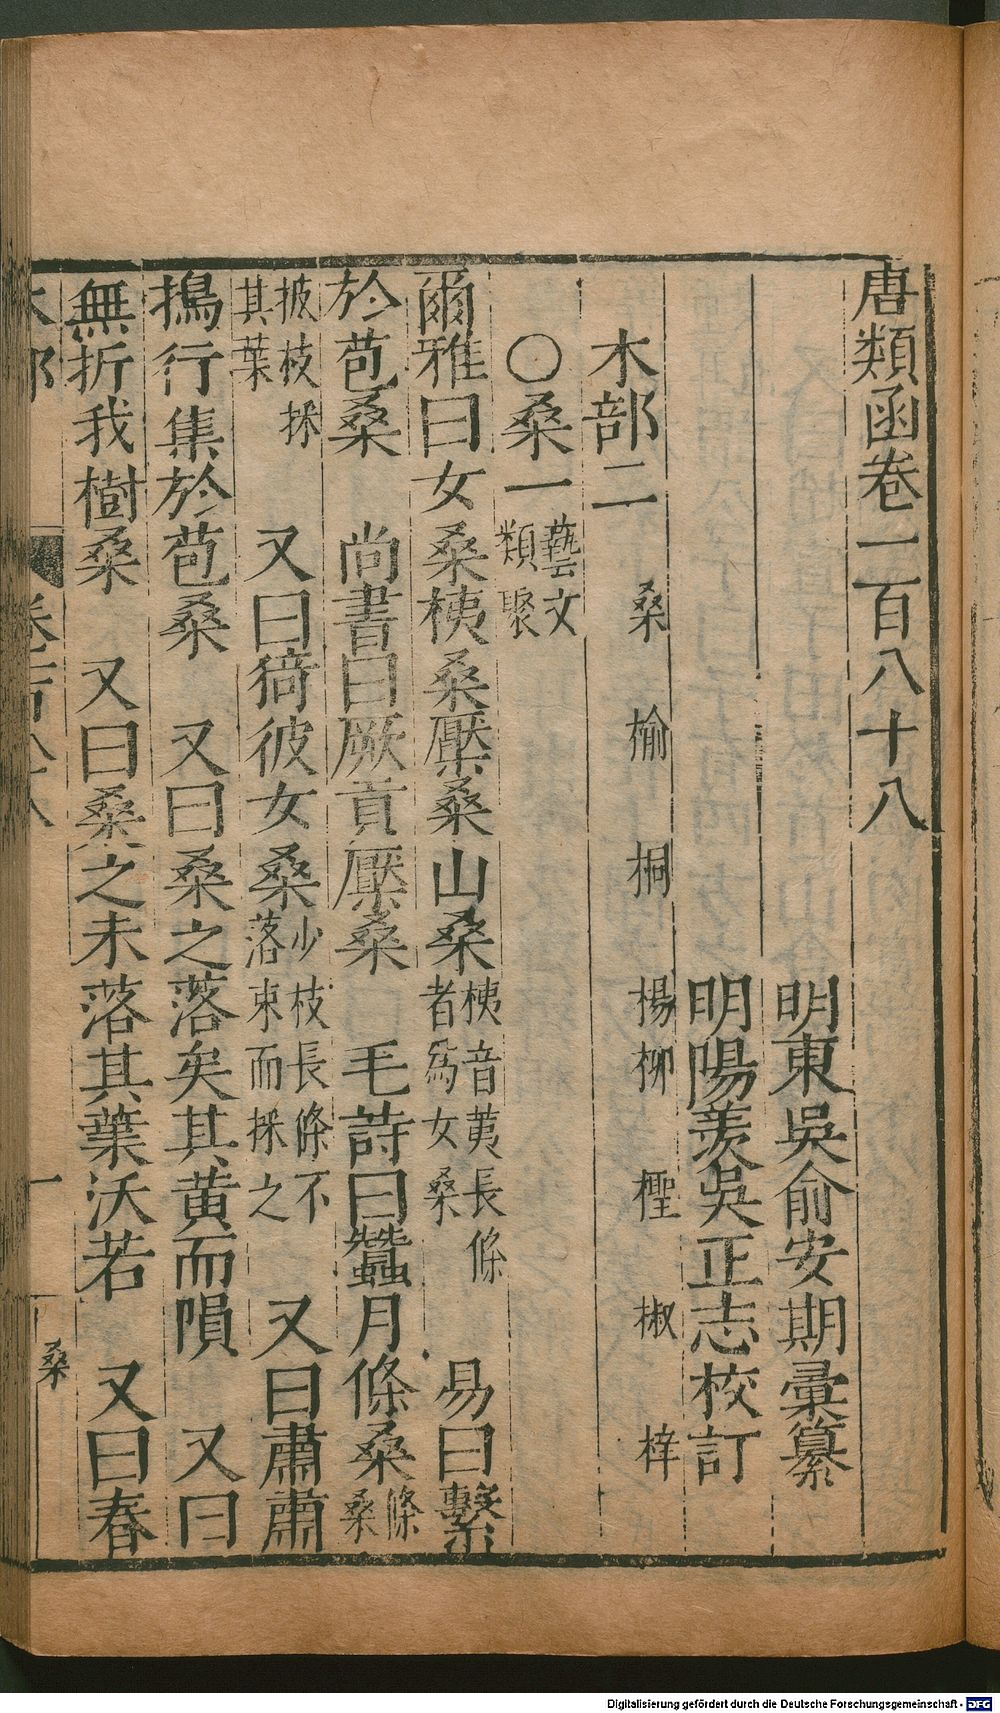 唐類函卷一百八十八
明東吳俞安期彙纂
明陽羨吳正志校訂
木部二 桑 榆 桐 楊柳 檉 椒 梓
○桑一 藝文類聚
爾雅曰女桑桋桑檿桑山桑 桋音荑長條者爲女桑 易曰繫
於苞桑 尚書曰厥貢檿桑 毛詩曰蠶月條桑 條桑
披枝採其葉 又曰猗彼女桑 少枝長條不落束而採之 又曰肅肅
鴇行集於苞桑 又曰桑之落矣其黄而隕 又曰
無折我樹桑 又曰桑之未落其葉沃若 又曰春
木部 卷一百八十八 一 桑
Digitalisierung gefördert durch die Deutsche Forschungsgemeinschaft - DFG